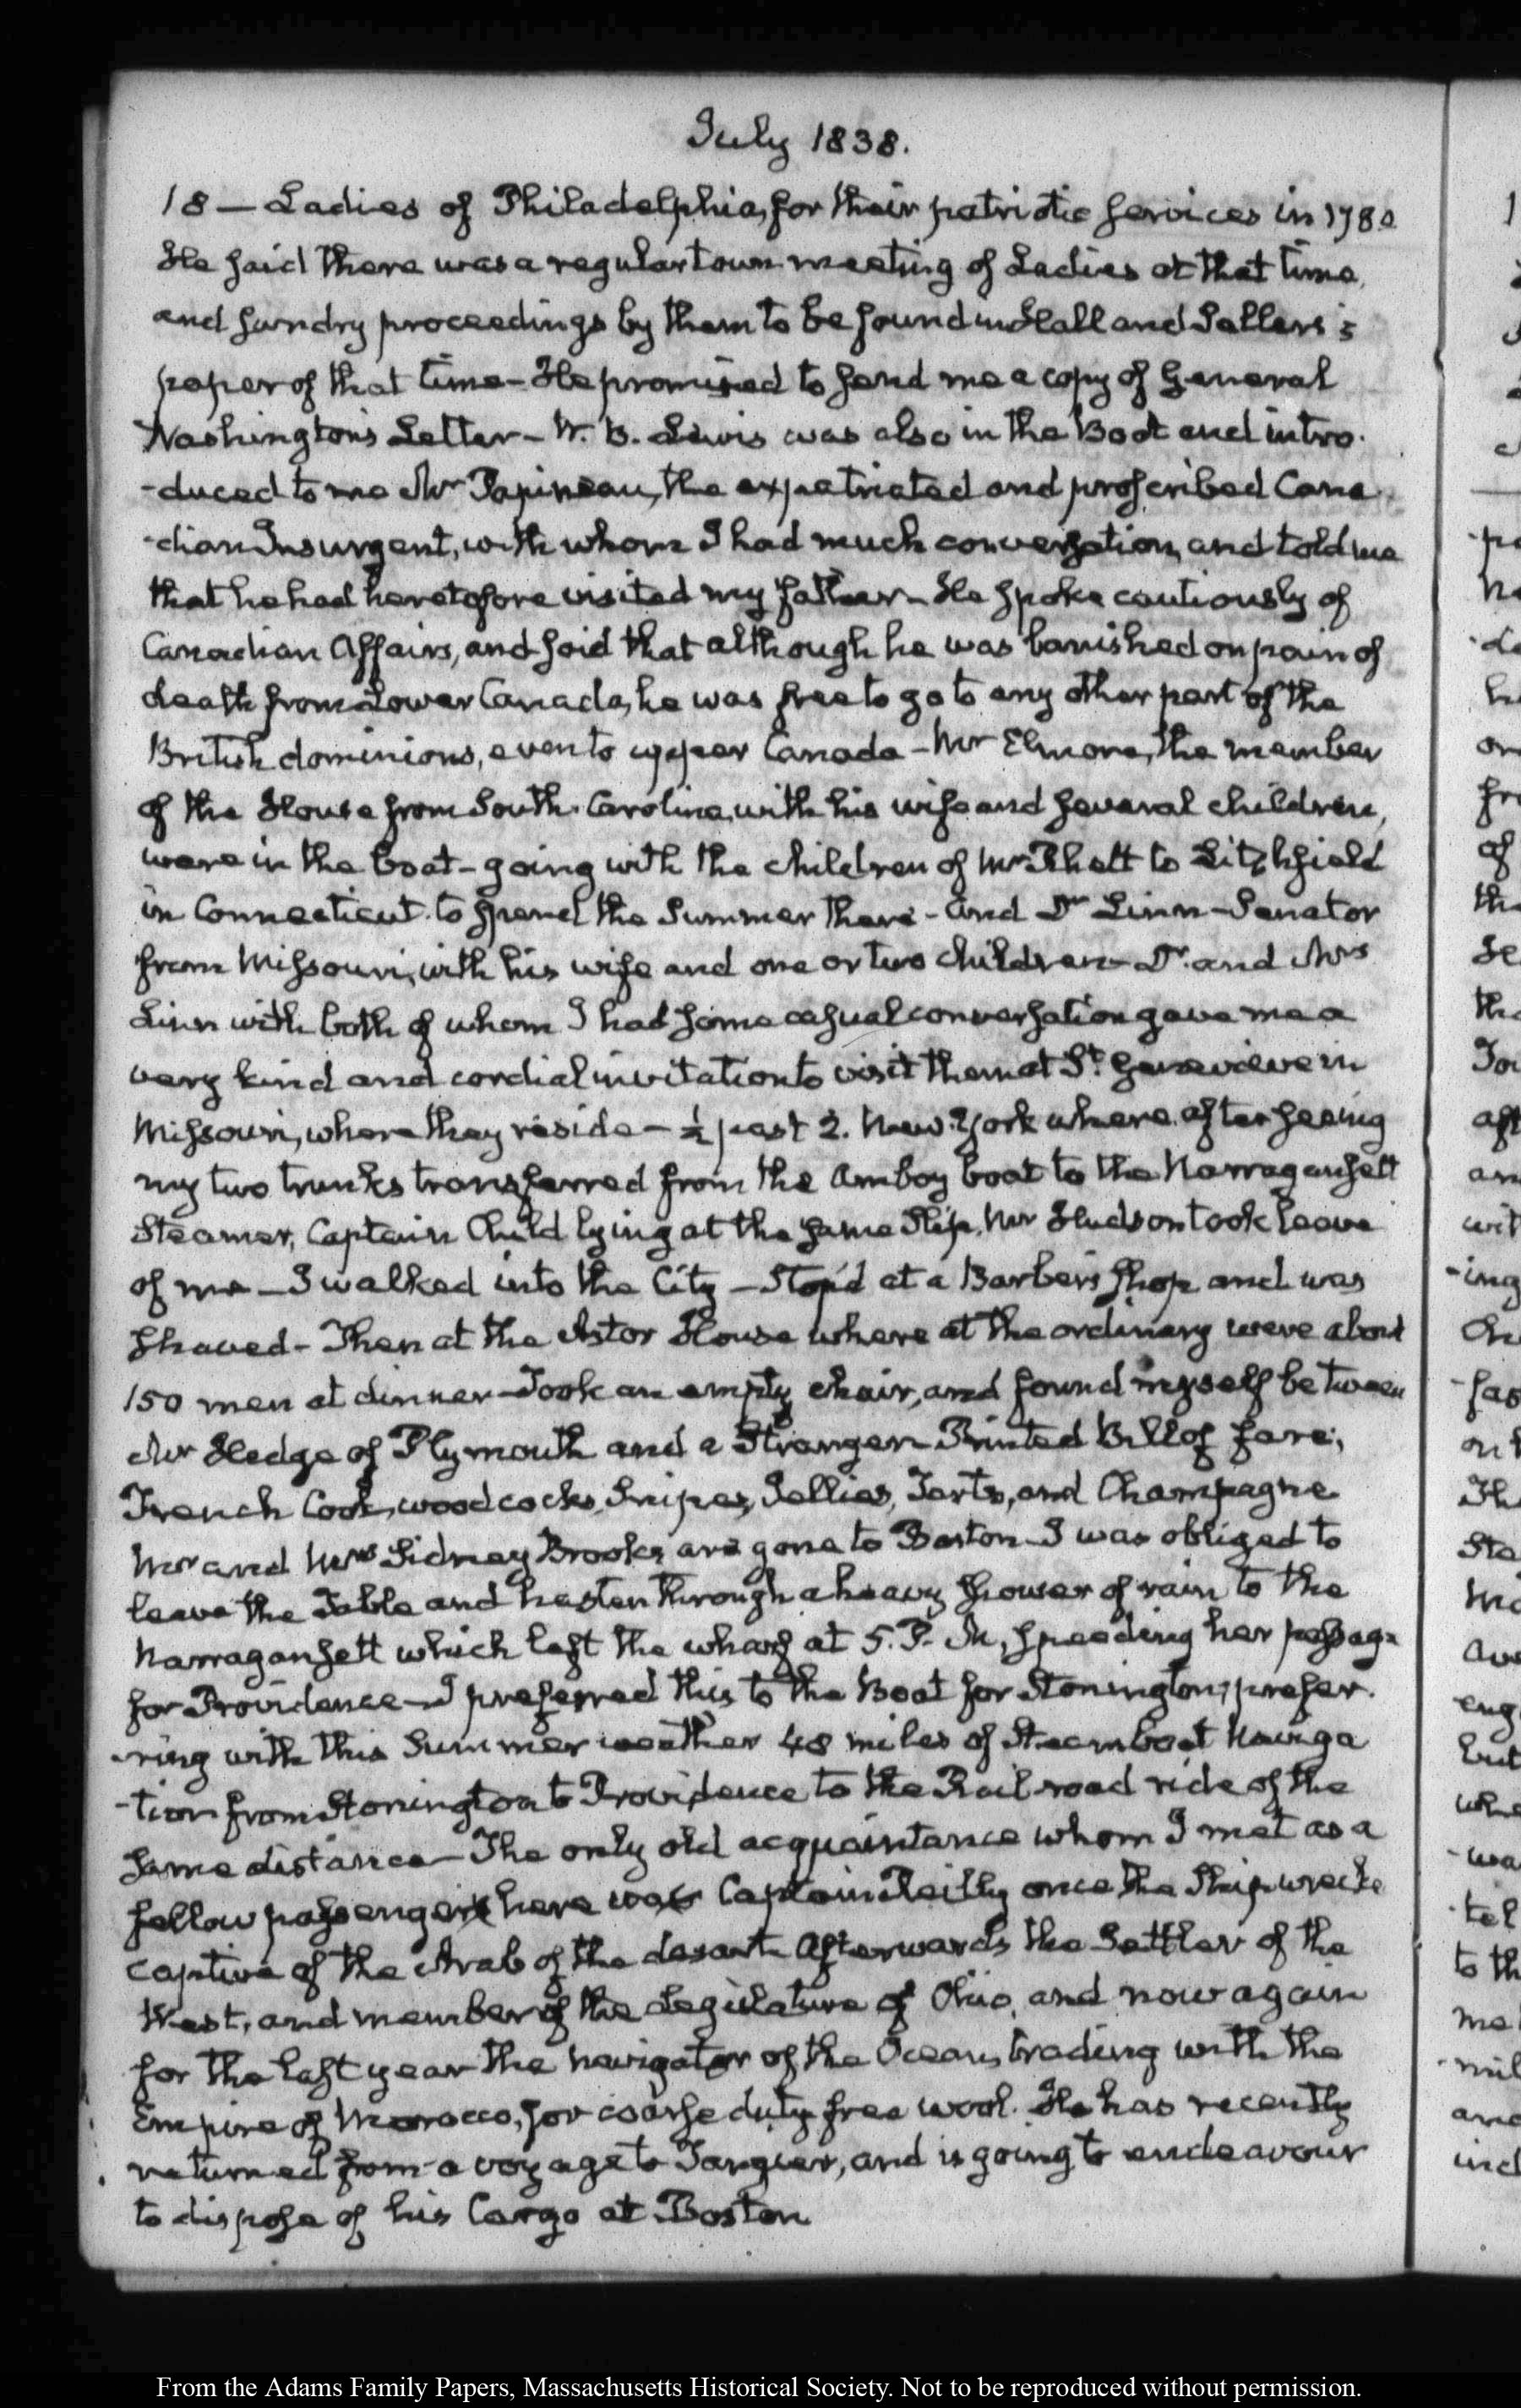 July 1838.
18 — Ladies of Philadelphia, for their patriotic services in 1780
He said there was a regular town meeting of Ladies at that time,
and sundry proceedings by them to be found in Hall and Sellers's
paper of that time - He promised to send me a copy of General
Washington's Letter - W. B. Lewis was also in the Boat and intro-
-duced to me Mr Papineau, the expatriated and proscribed Cana
-dian Insurgent, with whom I had much conversation, and told me
that he had heretofore visited my father - He spoke cautiously of
Canadian Affairs, and said that although he was banished on pain of
death from Lower Canada, he was free to go to any other part of the
British dominions, even to upper Canada - Mr Elmore, the member
of the House from South-Carolina, with his wife and several children,
were in the boat - going with the children of Mr Rhett to Litchfield
in Connecticut to spend the Summer there - and Dr Linn - Senator
from Missouri, with his wife and one or two children - Dr and Mrs
Linn with both of whom I had some casual conversation gave me a
very kind and cordial invitation to visit them at St Genevieve in
Missouri, where they reside - ½ past 2. New-York where after seeing
my two trunks transferred from the Amboy boat to the Narragansett
Steamer, Captain Child lying at the same Slip, Mr Hudson took leave
of me - I walked into the City - Stop'd at a Barber's shop and was
shaved - Then at the Astor House where at the ordinary were about
150 men at dinner - Took an empty chair, and found myself between
Mr Hedge of Plymouth and a Stranger - Printed Bill of fare;
French Cook, woodcocks, Snipes, Jellies, Tarts, and Champagne
Mr and Mrs Sidney Brooks are gone to Boston - I was obliged to
leave the Table and hasten through a heavy shower of rain to the
Narragansett which left the wharf at 5. P. M, speeding her passage
for Providence - I preferred this to the Boat for Stonington, prefer-
-ring with this Summer weather 48 miles of Steamboat Naviga
-tion from Stonington to Providence to the Rail-road ride of the
same distance - The only old acquaintance whom I met as a
fellow passenger here was Captain Reilly once the Shipwreck
captive of the Arab of the desart - Afterwards the Settler of the
West, and member of the Legislature of Ohio, and now again
for the last year the navigator of the Ocean, trading with the
Empire of Morocco, for coarse duty free wool. He has recently
returned from a voyage to Tangier, and is going to endeavour
to dispose of his Cargo at Boston
From the Adams Family Papers, Massachusetts Historical Society. Not to be reproduced without permission.